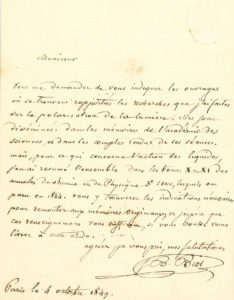 Monsieur
Vous me demandez de vous indiquer les ouvrages
où se trouvent rapportées les recherches que j'ai faites
sur la polarisation de la lumière. elles sont
disséminées dans les mémoires de l'académie des
sciences, et dans les comptes rendus de ses séances.
mais, pour ce qui concerne l'action des liquides,
j'en ai résumé l'ensemble dans les tomes X et XI des
annales de chimie et de Physique 3e série, lesquels ont
paru en 1844. vous y trouverez les indications nécessaires
pour remonter aux mémoires originaux, et j'espère que
ces renseignements vous suffiront si vous voulez vous
livrer à cette étude.
agréez je vous prie, mes salutations
Bt Biot
Paris le 4 octobre 1849.